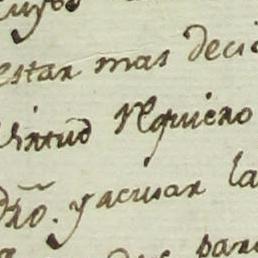 estar mas deci
Virtud Requiero
Dro. y acusar la